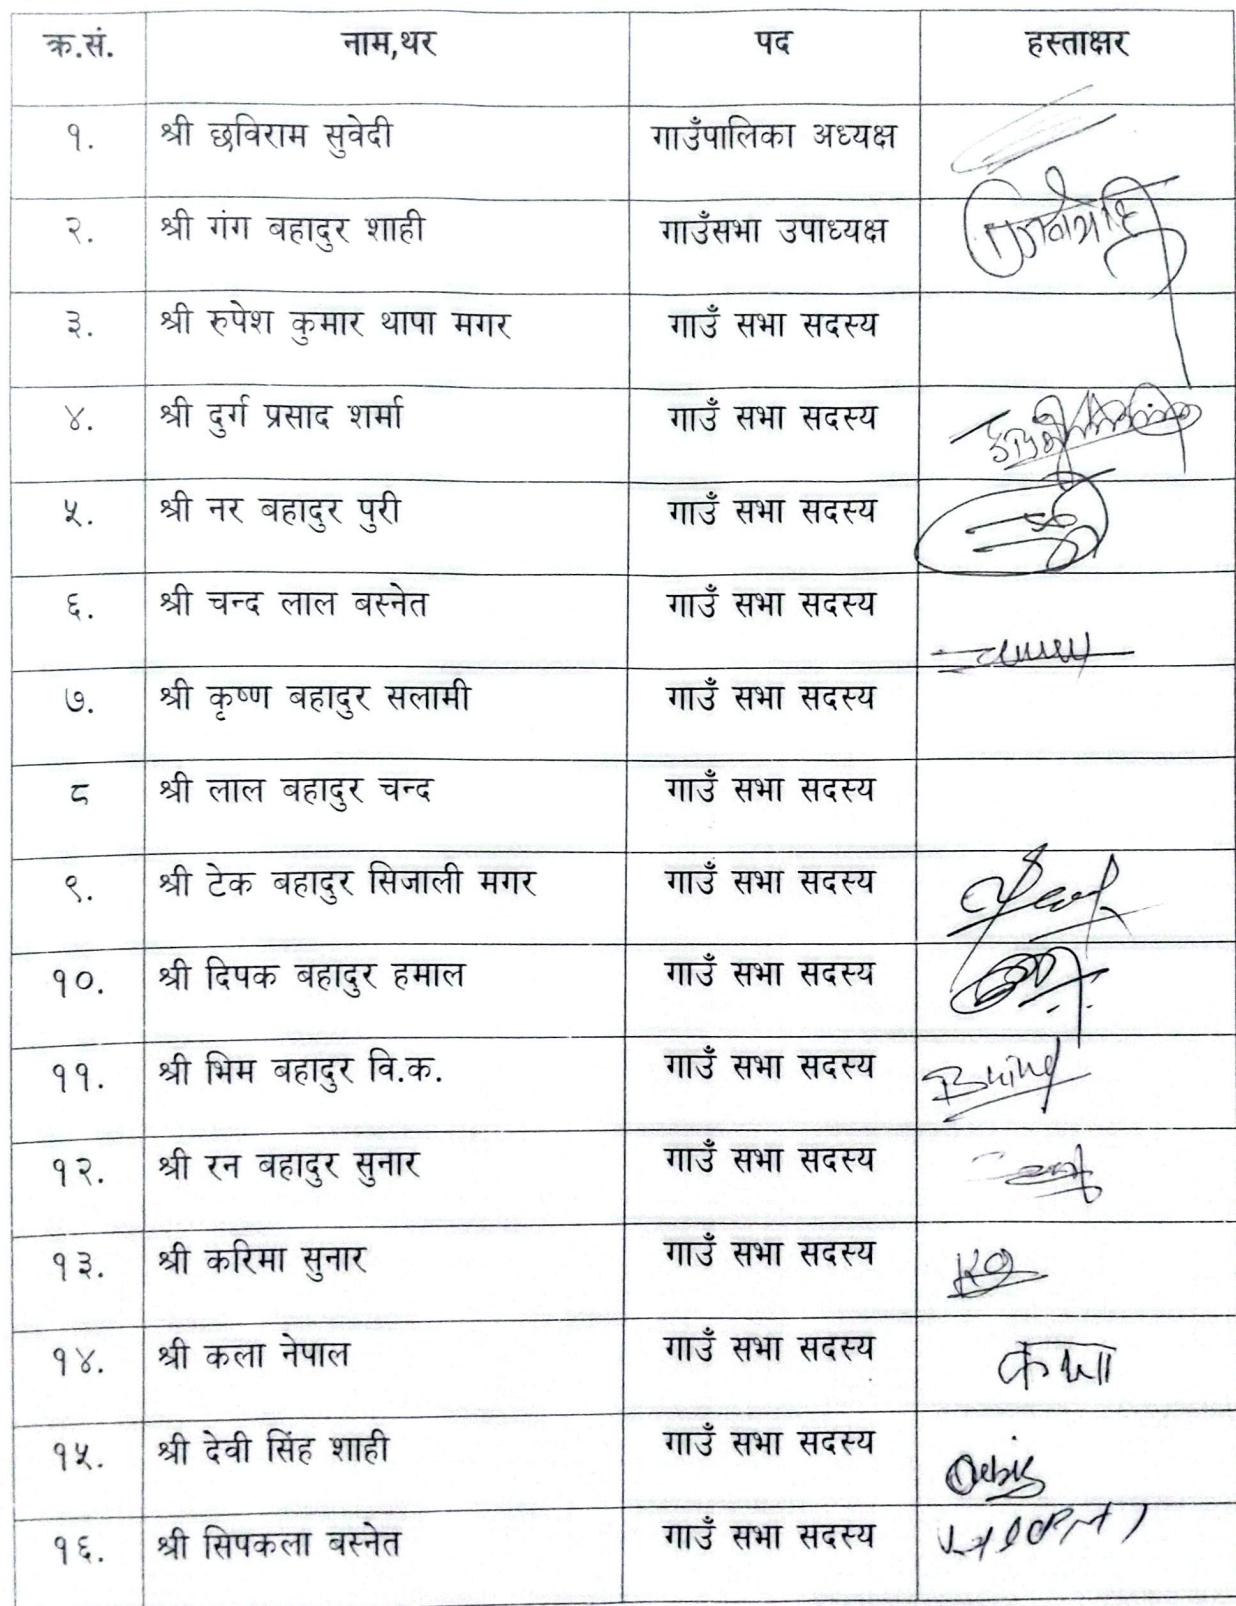 क्र.सं. नाम,थर पद हस्ताक्षर
१. श्री छविराम सुवेदी गाउँपालिका अध्यक्ष
२. श्री गंग बहादुर शाही गाउँसभा उपाध्यक्ष
३. श्री रुपेश कुमार थापा मगर गाउँ सभा सदस्य
४. श्री दुर्ग प्रसाद शर्मा गाउँ सभा सदस्य
५. श्री नर बहादुर पुरी गाउँ सभा सदस्य
६. श्री चन्द लाल बस्नेत गाउँ सभा सदस्य
७. श्री कृष्ण बहादुर सलामी गाउँ सभा सदस्य
८ श्री लाल बहादुर चन्द गाउँ सभा सदस्य
९. श्री टेक बहादुर सिजाली मगर गाउँ सभा सदस्य
१०. श्री दिपक बहादुर हमाल गाउँ सभा सदस्य
११. श्री भिम बहादुर वि.क. गाउँ सभा सदस्य
१२. श्री रन बहादुर सुनार गाउँ सभा सदस्य
१३. श्री करिमा सुनार गाउँ सभा सदस्य
१४. श्री कला नेपाल गाउँ सभा सदस्य
१५. श्री देवी सिंह शाही गाउँ सभा सदस्य
१६. श्री सिपकला बस्नेत गाउँ सभा सदस्य